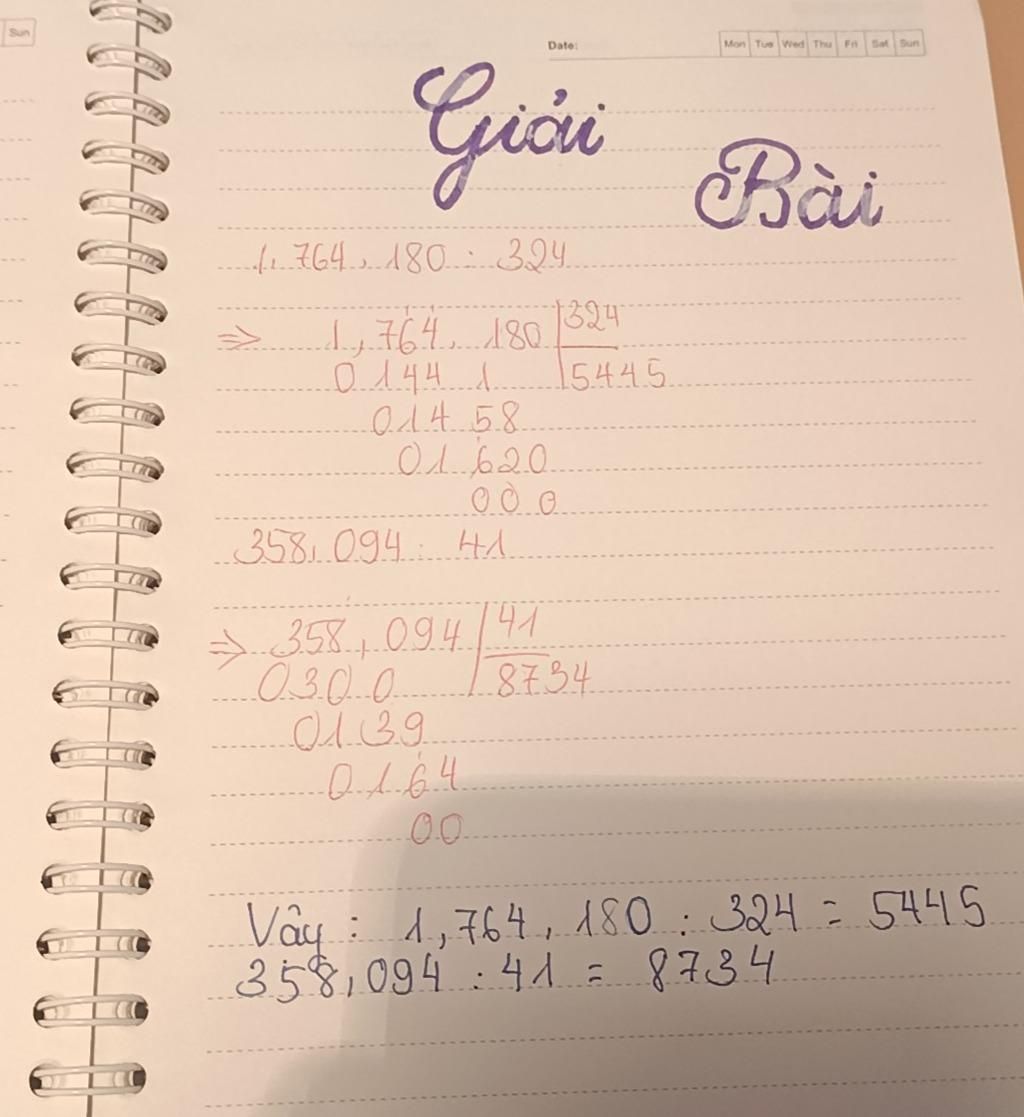 Sun
Date: Mon Tue Wed Thu Fri Sat Sun
Giải
Bài
1,764,180 : 324
⇒ 1,764,180 324
0144 1 5445
014 58
01 620
00 0
358,094 : 41
⇒ 358,094 41
030 0 8734
01 39
0164
00
Vây : 1,764,180 : 324 = 5445
358,094 : 41 = 8734